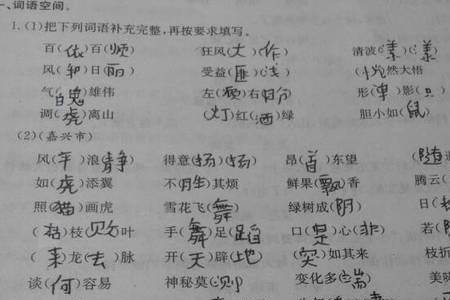 一、词语空间。
1.(1)把下列词语补充完整,再按要求填写。
百(依)百(顺) 狂风(大)(作) 清波(漾)(漾)
风(和)日(丽) 受益(匪)(浅) (恍)然大悟
气(魄)雄伟 左(顾)右(盼) 形(单)影(只)
调(虎)离山 (灯)红(酒)绿 胆小如(鼠)
(2)(嘉兴市)
风(平)浪(静) 得意(扬)(扬) 昂(首)东望 (随
如(虎)添翼 不(胜)其烦 鲜果(飘)香 腾云(
照(猫)画虎 雪花飞(舞) 绿树成(阴) 日(
( )枝( )叶 手(舞)足(蹈) 口(是)心(非) 若(
(来)龙(去)脉 开(天)辟(地) (突)如其来 枝折
谈(何)容易 神秘莫(测) 变化多(端) 美